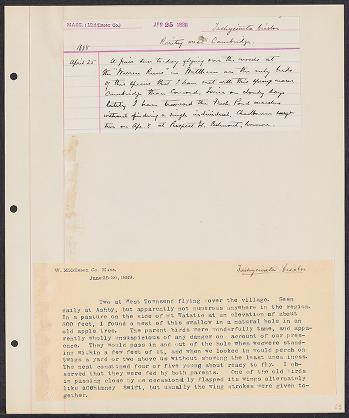 MASS. (Middlesex Co.) APR 25 1888 Tachycineta bicolor
Rarity near Cambridge.
1888
April 25 A pair seen to-day flying over the woods at
the "Warren Runs" in Waltham are the only birds
of this species that I have met with this spring nearer
Cambridge than Concord, Twice on cloudy days
lately I have traversed the Fresh Pond marshes
without finding a single individual. Chadbourne
two on Ap. 8 at Prospect St. Belmont, however.
W. Middlesex Co. Mass. Tachycineta bicolor
June 25-30, 1889.
Two at West Townsend flying over the village. Seen
daily at Ashby, but apparently not numerous anywhere in the region.
In a pasture on the side of Mt Watatic at an elevation of about
800 feet, I found a nest of this swallow in a natural hole in an
old apple tree. The parent birds were wonderfully tame, and appa-
rently wholly unsuspicious of any danger on account of our pres-
ence. They would pass in and out of the hole when we were stand-
ing within a few feet of it, and when we looked in would perch on
twigs a yard or two above us without showing the least uneasiness.
The nest contained four or five young about ready to fly. I ob-
served that they were fed by both parents. One of the old birds
in passing close by us occasionally flapped its wings alternately
like a Chimney Swift, but usually the wing strokes were given to-
gether.